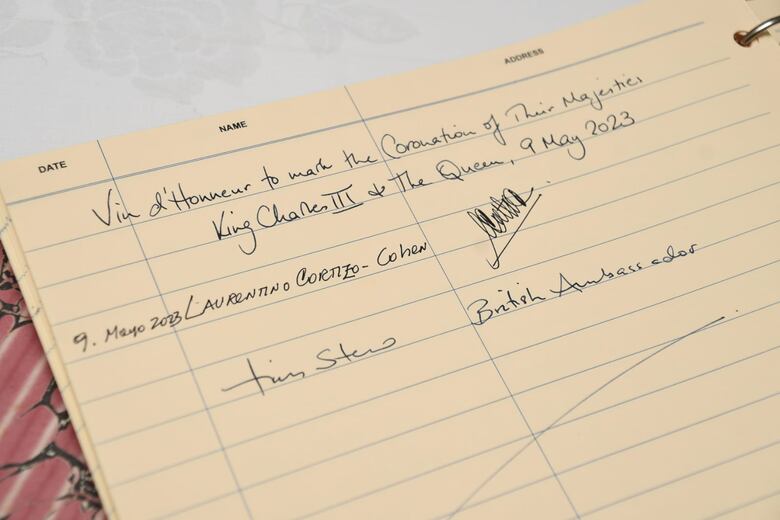 DATE NAME ADDRESS
Vin d'Honneur to mark the Coronation of Their Majesties
King Charles III & The Queen, 9 May 2023
9. Mayo 2023 LAURENTINO CORTIZO-COHEN
British Ambassador